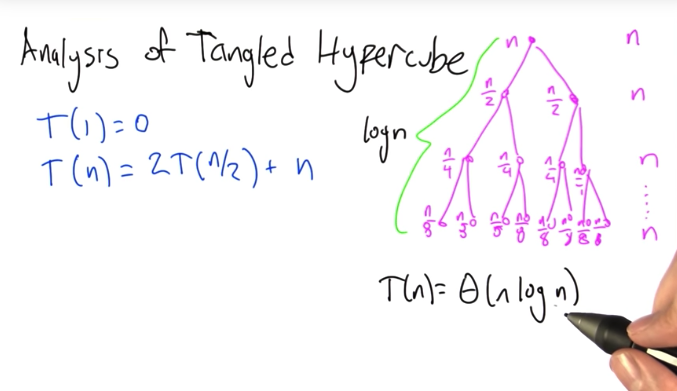 Analysis of Tangled Hypercube
T(1)=0
T(n)= 2T(n/2)+ n
log n
n n
n/2 n/2 n
n/4 n/4 n/4 n
n/8 n/8 n/8 n
T(n)= Θ(n log n)